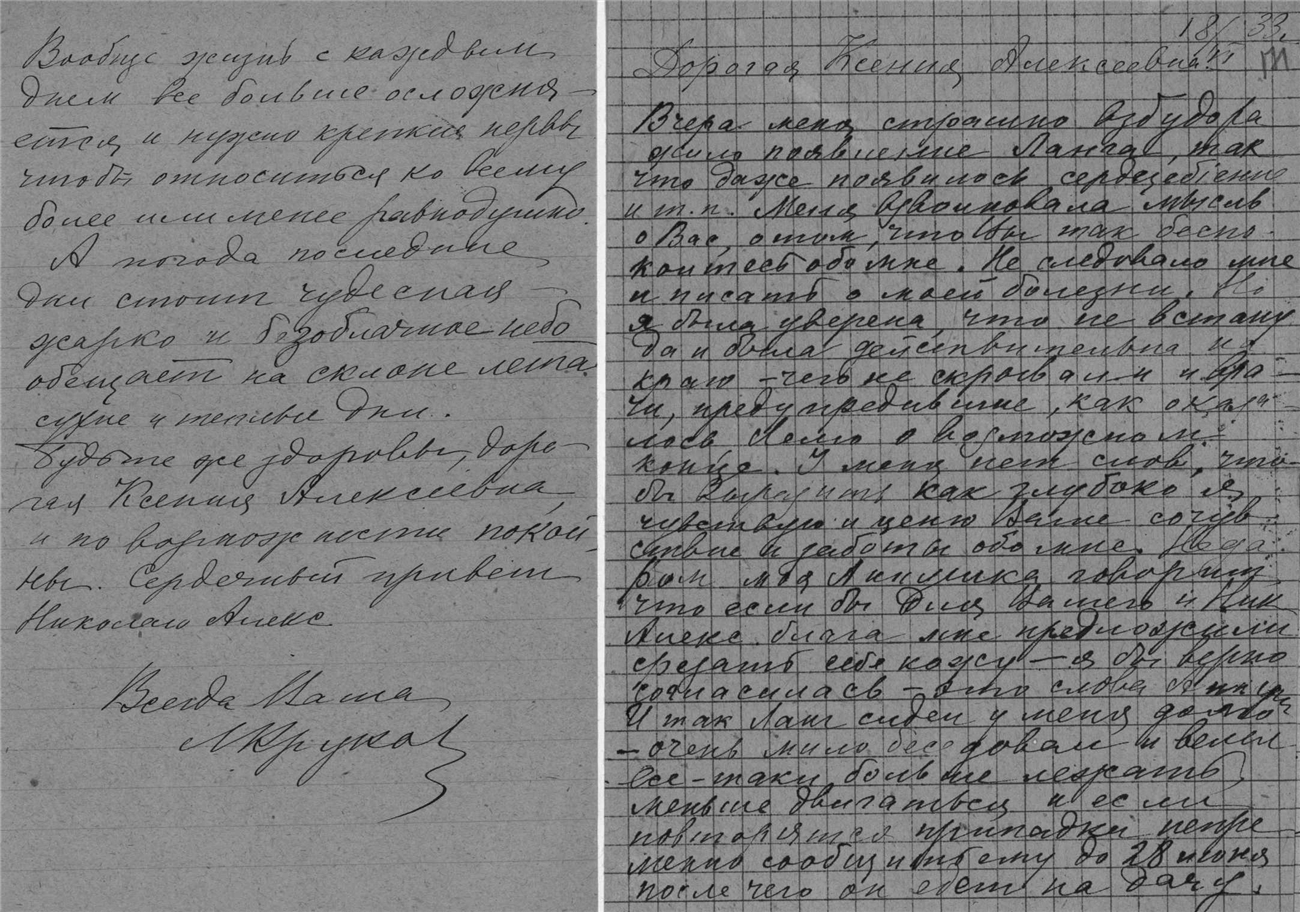 Вообще жизнь с каждым
днем все больше осложня-
ется и нужно крепкия нервы
чтобы относиться ко всему
более или менее равнодушно.
А погода последние
дни стоит чудесная —
жарко и безоблачное небо
обещает на склоне лета
сухие и теплые дни.
Будьте же здоровы, доро-
гая Ксения Алексеевна,
и по возможности покой-
ны. Сердечный привет
Николаю Алекс
Всегда Ваша
ЛКруков
18/ 33.
Дорогая Ксения Алексеевна!!
Вчера меня страшно взбудора
жило появление Ланга, так
что даже появилось сердцебiение
и т.п. Меня взволновала мысль
о Вас, о том, что Вы так беспо-
коитесь обо мне. Не следовало мне
и писать о моей болезни. Но
я была уверена, что не встану
да и была действительна на
краю – чего не скрывали и вра-
чи, предупредившие, как оказа-
лось Лелю о возможном
конце. У меня нет слов, что-
бы выразить как глубоко я
чувствую и ценю Ваше сочув-
ствие и заботы обо мне. Неда-
ром моя говорит
что если бы для Вашего и Ник
Алекс. блага мне предложили
срезать себе кожу – я бы верно
согласилась – это слова
И так Ланг сидел у меня долго
– очень мило беседовал и велел
все-таки больше лежать,
меньше двигаться и если
повторятся припадки непре-
менно сообщить ему до 28 июня
после чего он едет на дачу.